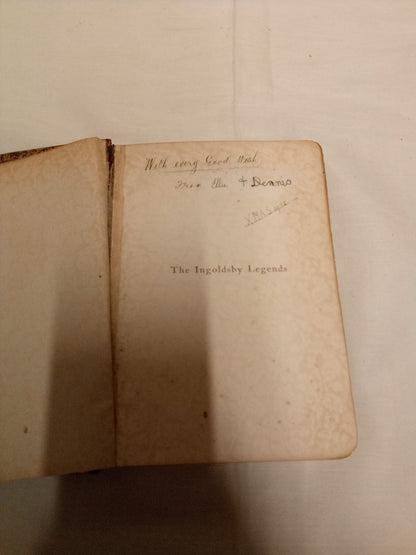 With every Good Wish
from Ella & Dennis
XMAS
The Ingoldsby Legends